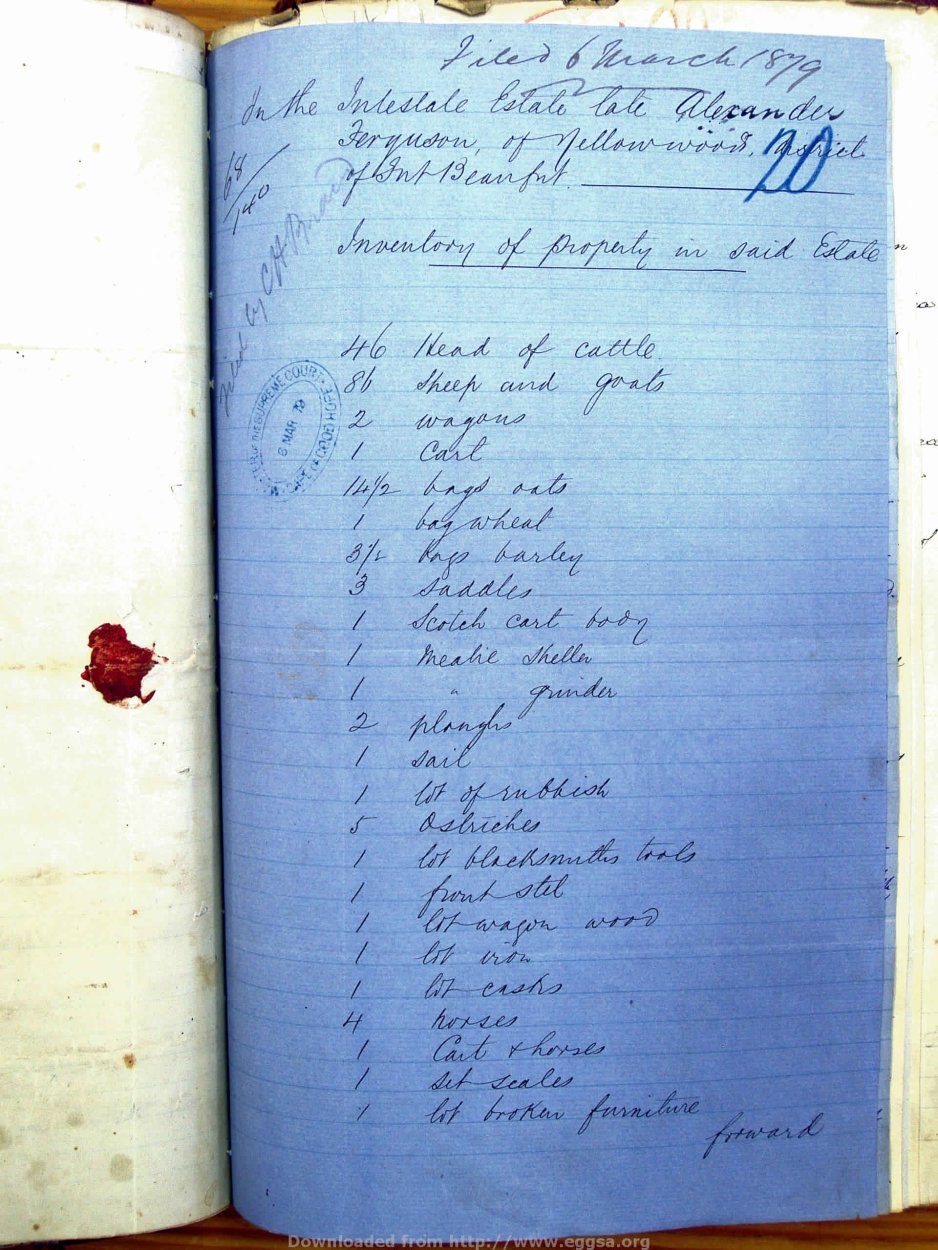 Filed 6 March 1879
In the Intestate Estate late Alexander
Ferguson, of Yellowwood, District
of Fort Beaufort.
20
68/140
Filed by C H
Inventory of Property in said Estate
46 Head of cattle
86 Sheep and goats
2 wagons
1 Cart
14 1/2 bags oats
1 bag wheat
3 1/2 bags barley
3 Saddles
1 Scotch cart body
1 Mealie Sheller
1 " grinder
2 ploughs
1 Sail
1 lot of rubbish
5 Ostriches
1 lot blacksmiths tools
1 front stel
1 lot wagon wood
1 lot iron
1 lot casks
4 horses
1 Cart & horses
1 set scales
1 lot broken furniture
forward
SUPREME COURT
MAR 79
CAPE OF GOOD HOPE
Downloaded from http://www.eggsa.org